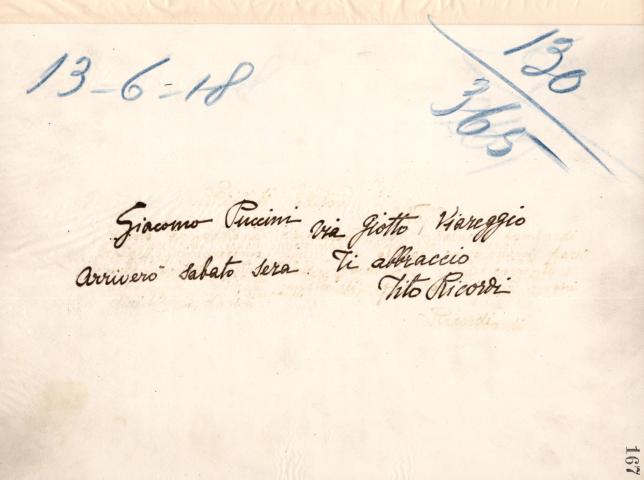 13-6-18
130
365
Giacomo Puccini via Giotto Viareggio
Arriverò sabato sera Ti abbraccio
Tito Ricordi
167